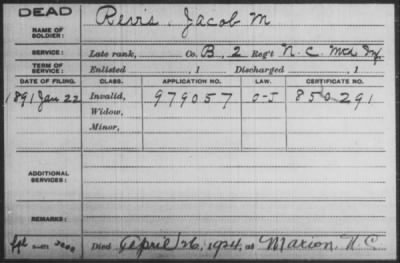 DEAD
NAME OF SOLDIER: Revis, Jacob M
SERVICE: Late rank, Co. B, 2 Reg't N.C. Mtd Inf.
TERM OF SERVICE: Enlisted , 1 Discharged , 1
DATE OF FILING. CLASS. APPLICATION NO. LAW. CERTIFICATE NO.
1891 Jan 22 Invalid, 979057 G-J 850291
Widow,
Minor,
ADDITIONAL SERVICES:
REMARKS:
Died April 26, 1924, at Marion, N.C.